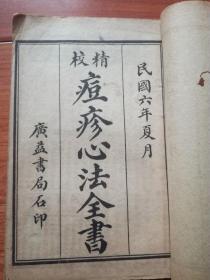 民國六年夏月
精校
痘疹心法全書
廣益書局石印